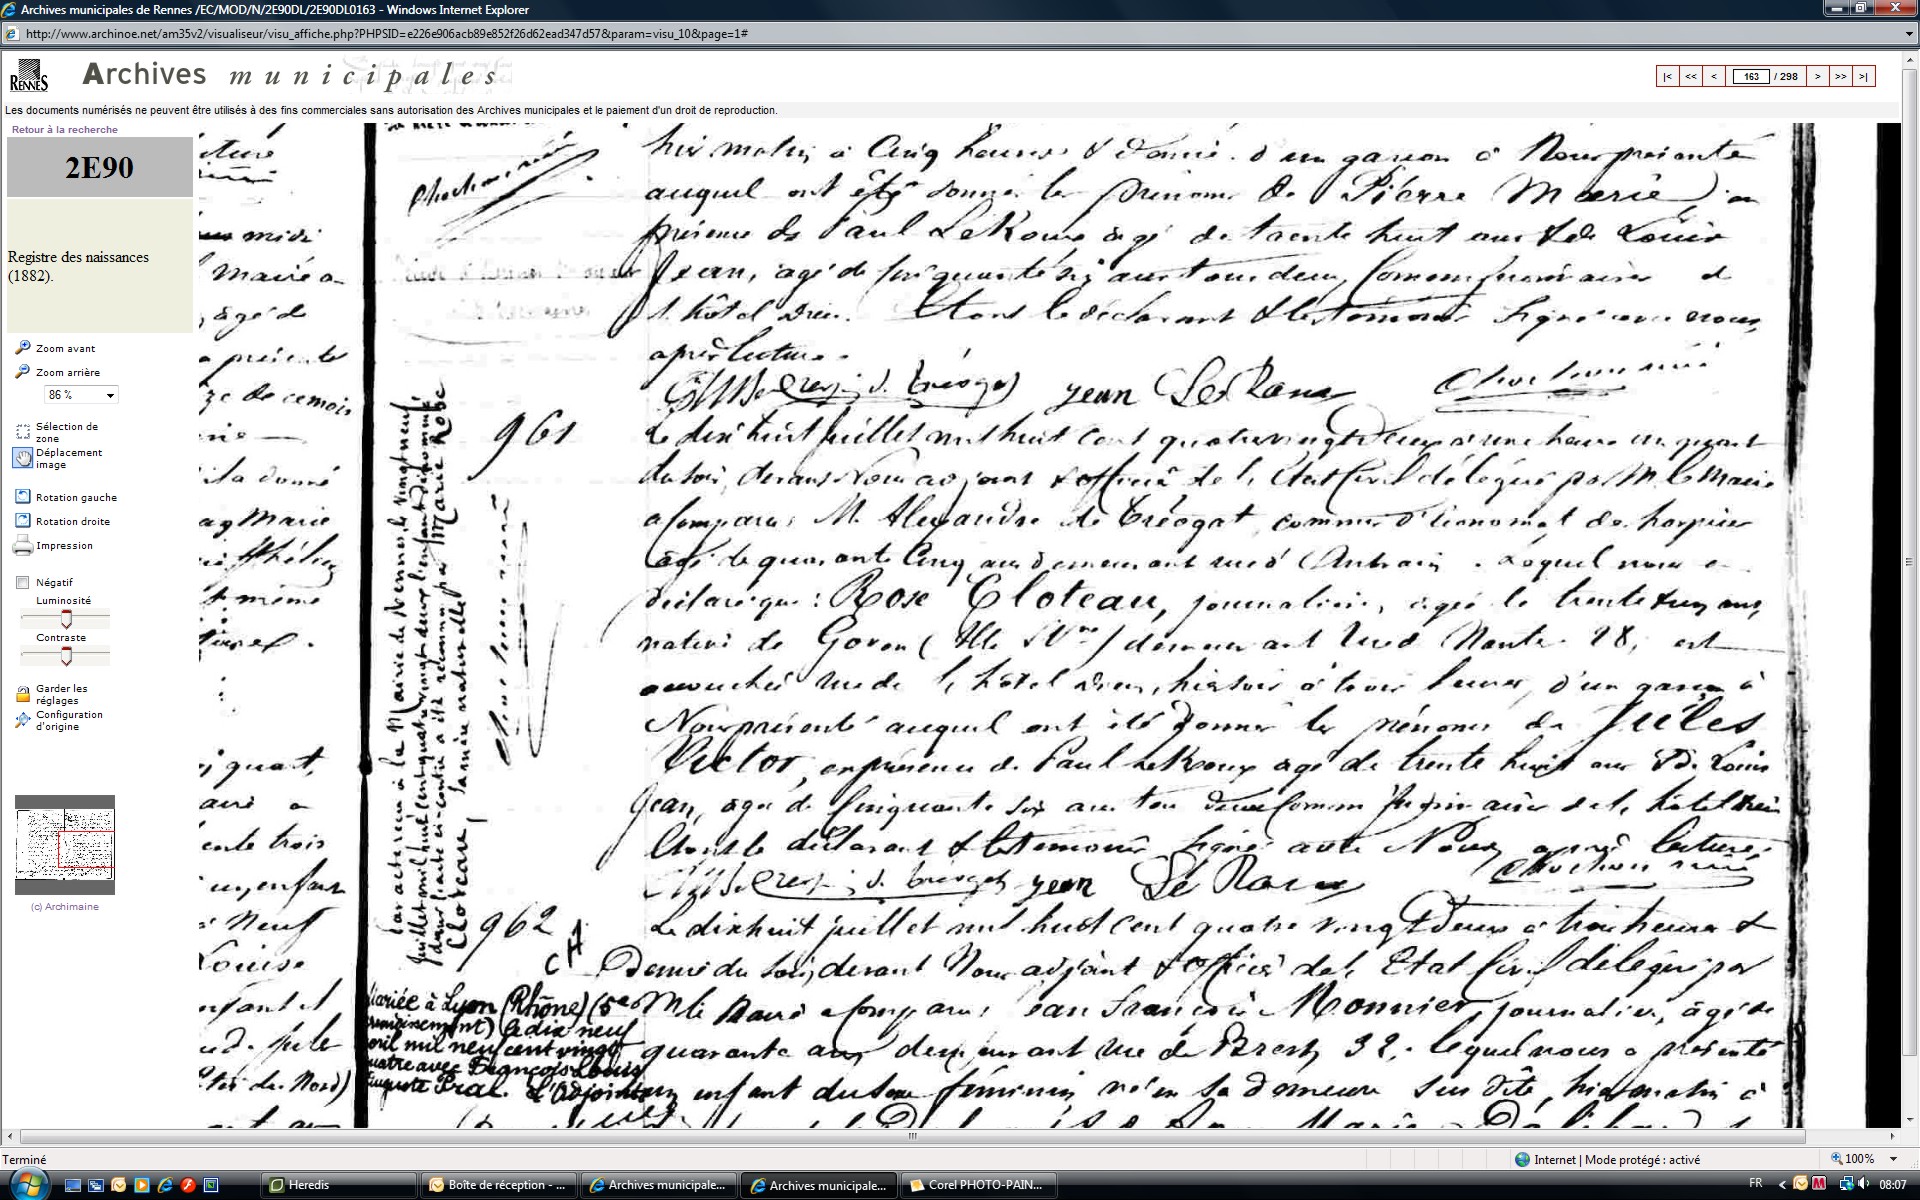 Archives municipales de Rennes /EC/MOD/N/2E90DL/2E90DL0163 - Windows Internet Explorer
http://www.archinoe.net/am35v2/visualiseur/visu_affiche.php?PHPSID=e226e906acb89e852f26d62ead347d57&param=visu_10&page=1#
RENNES Archives municipales
|< << < 163 / 298 > >> >|
Les documents numérisés ne peuvent être utilisés à des fins commerciales sans autorisation des Archives municipales et le paiement d'un droit de reproduction.
Retour à la recherche
2E90
Registre des naissances
(1882).
Zoom avant
Zoom arrière
86 %
Sélection de
zone
Déplacement
image
Rotation gauche
Rotation droite
Impression
Négatif
Luminosité
Contraste
Garder les
réglages
Configuration
d'origine
(c) Archimaine
hier matin à Cinq heures & demie d'un garçon à Nous présenté
auquel ont été donné les prénoms de Pierre Marie) en
présence de Paul Le Roux agé de trente huit ans & de Louis
Jean, agé de cinquante six ans tous deux commissionnaires à
l'hôtel Dieu. Et ont le déclarant & les témoins signé avec nous,
après lecture.
Jean Le Roux
961
Le dix huit juillet mil huit cent quatre vingt Deux à une heure un quart
du soir, devant Nous adjoint & officier de l'Etat Civil délégué par M. le Maire
a Comparu M. Alexandre de Tréogat, commis d'économat des hospices
agé de quarante Cinq ans demeurant rue d'Antrain. Lequel nous a
déclaré que : Rose Cloteau, journalière, agée de trente deux ans,
native de Goven (Ille & Vne) demeurant rue de Nantes 28, est
accouchée rue de l'hôtel Dieu, hier soir à trois heures, d'un garçon à
Nous présenté auquel ont été donnés les prénoms de Jules
Victor, en présence de Paul Le Roux agé de trente huit ans & de Louis
Jean, agé de cinquante six ans tous deux Commissionnaires de l'hôtel Dieu
Et ont le déclarant & les témoins signé avec Nous après lecture.
Jean Le Roux
Par acte reçu à la Mairie de Rennes, le vingt neuf
juillet mil huit cent quatre vingt deux l'enfant dénommé
dans l'acte ci-contre a été reconnu par Marie Rose
Cloteau, sa mère naturelle
962
Le dix huit juillet mil huit cent quatre vingt Deux à trois heures &
Demie du soir, devant Nous adjoint & officier de l'Etat Civil délégué par
M. le Maire a Comparu Jean François Monnier, journalier, agé de
quarante ans demeurant rue de Brest, 32, lequel nous a présenté
un enfant du sexe féminin, né en sa demeure sus dite, hier matin à
Mariée à Lyon (Rhône) (5e
arrondissement) le dix neuf
avril mil neuf cent vingt
quatre avec François Louis
Auguste Pral. L'Adjoint
Terminé
Internet | Mode protégé : activé
100%
Heredis
Boîte de réception - ...
Archives municipale...
Archives municipale...
Corel PHOTO-PAIN...
FR
08:07